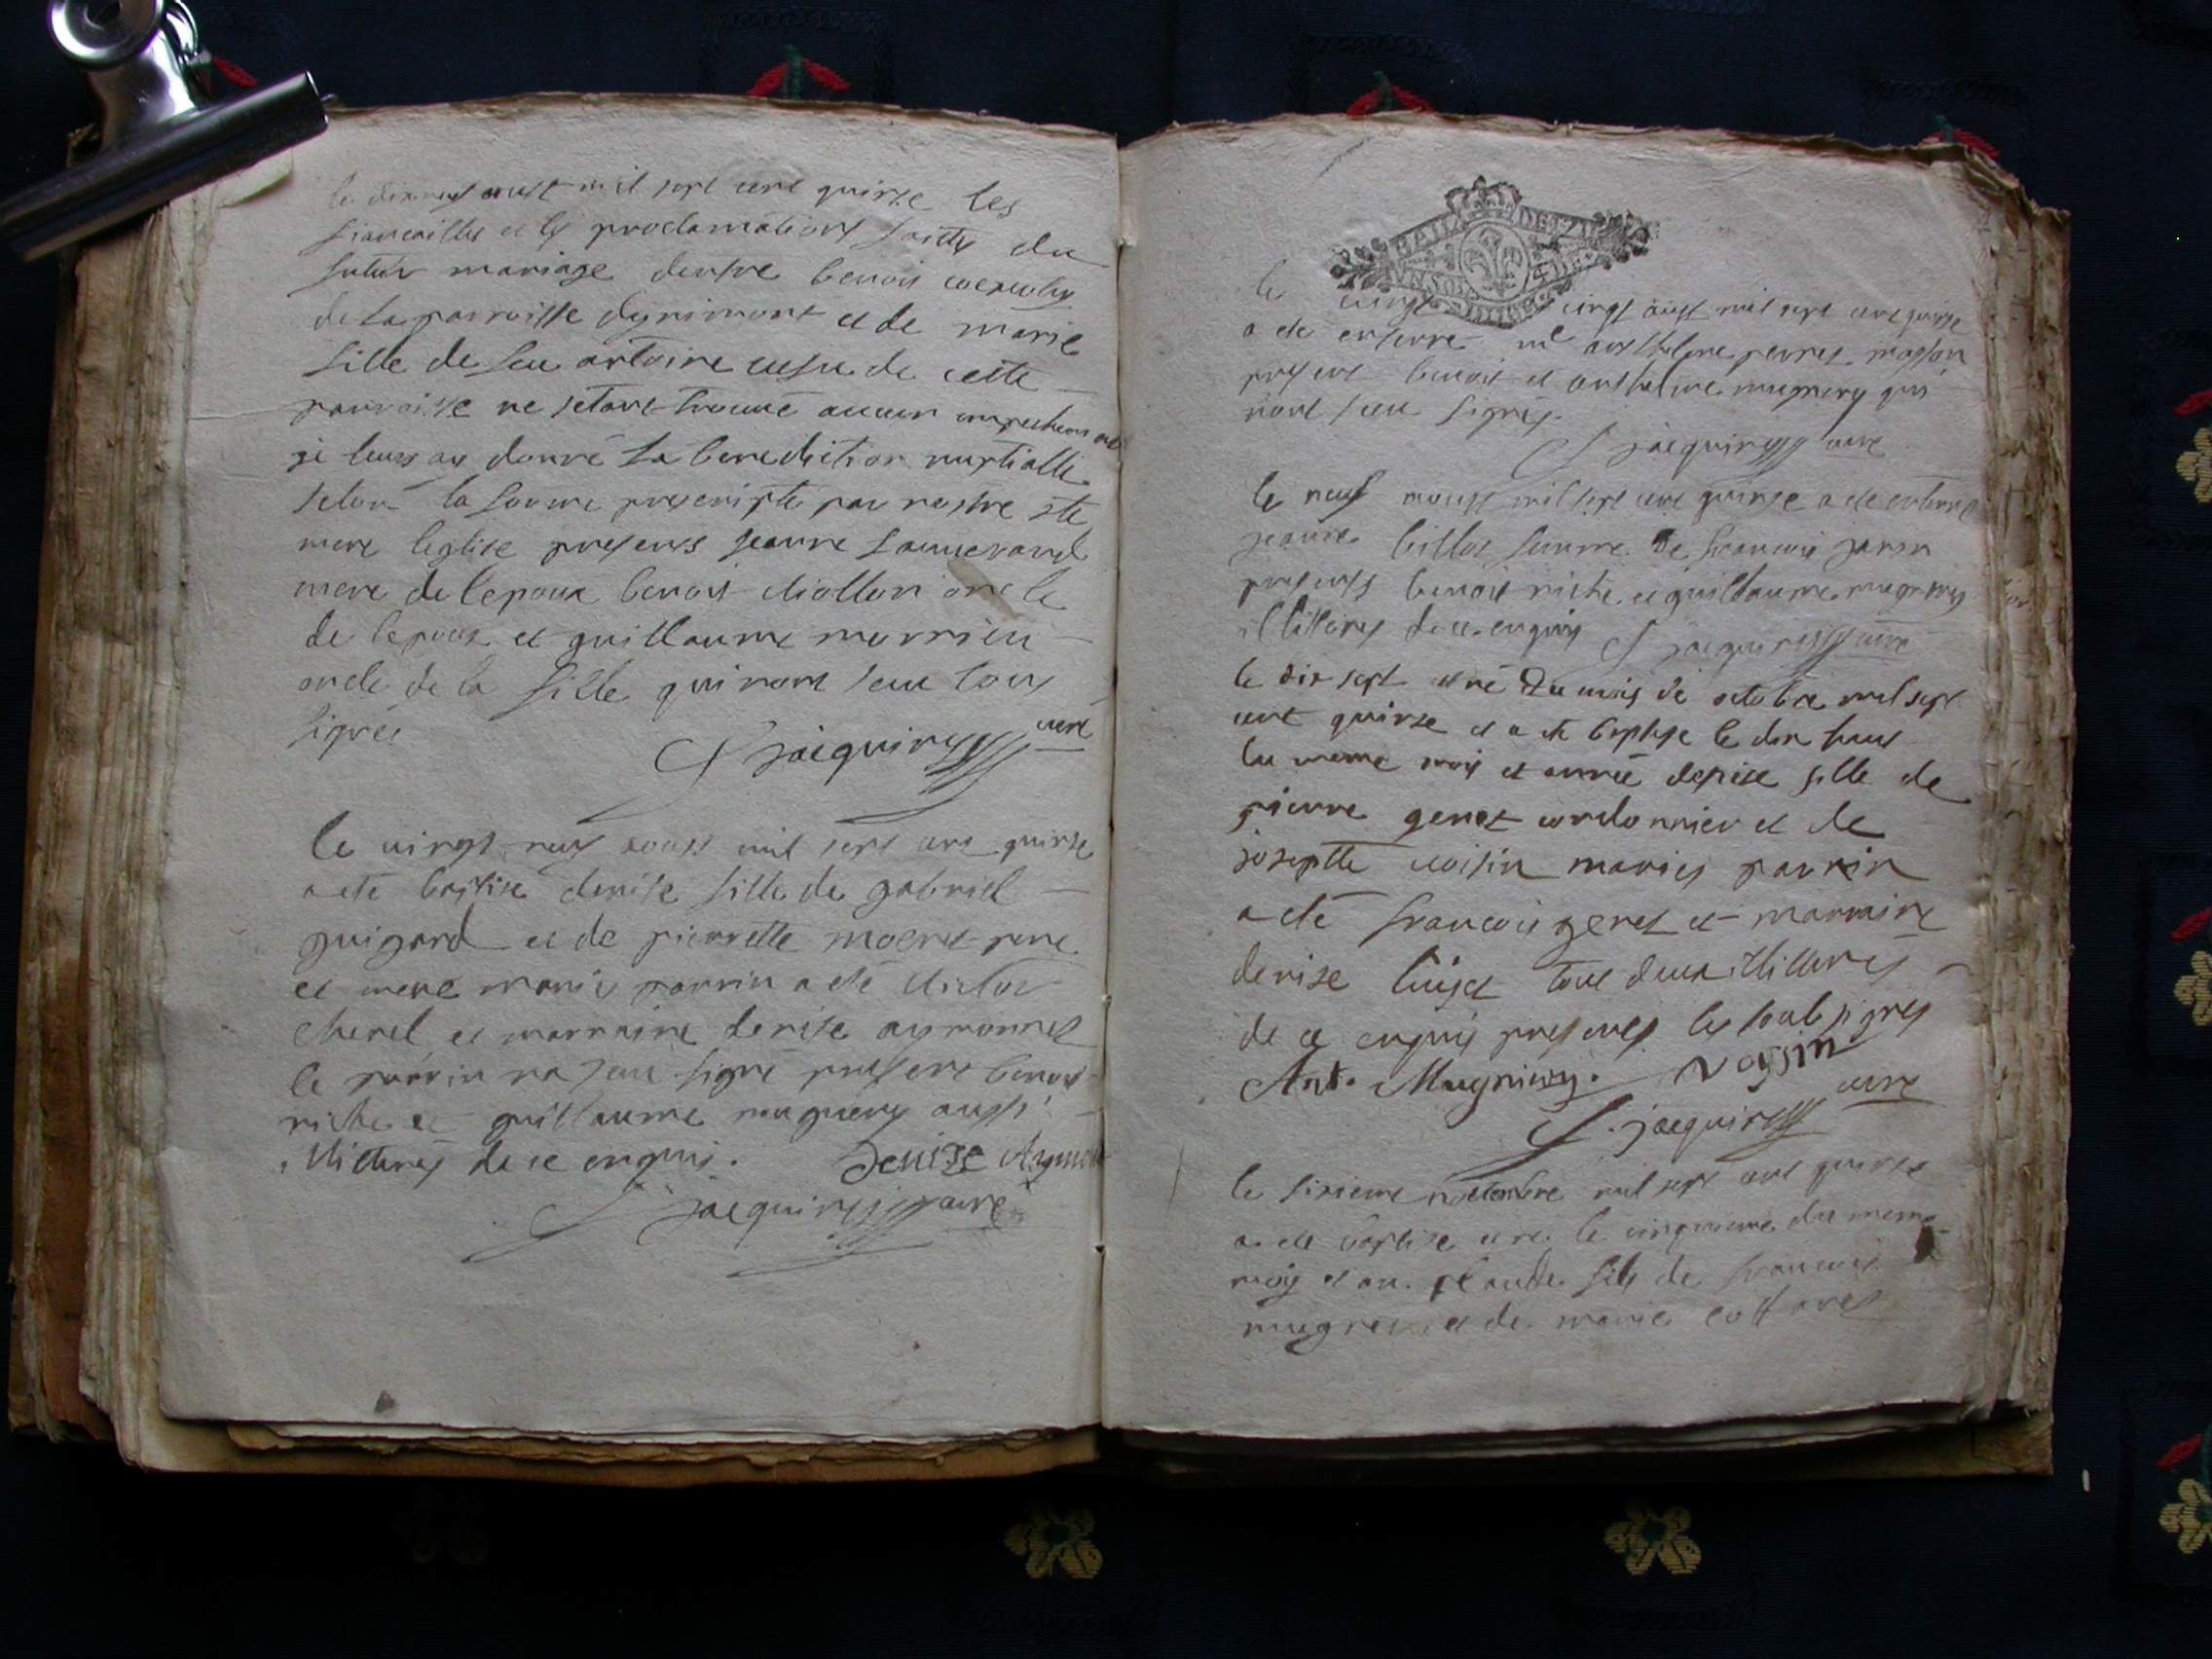 le dixneuf aust mil sept cent quinze les
fiancailles et les proclamations faittes du
futur mariage dentre benoit
de la parroisse dynimont et de marie
fille de feu antoine de cette
parroisse ne setant trouué aucun empechement
je leurs ay donné la benediction nuptialle
selon la forme prescripte par nostre ste
mere leglise presents jeanne
mere de lepoux benoit oncle
de lepoux et guillaume
oncle de la fille qui nont sceu tous
signés
jacquin curé
le vingt neuf aoust mil sept cent quinze
a été baptisé denise fille de gabriel
guigard et de pierrette pere
et mere mariés parrin a eté
et marraine denise aymonnet
le parrin na sceu signé present benoit
riche et guillaume mugniery aussi
illitterés de ce enquis. Denise Aymon
jacquin curé
BAUX DE 12 D
UN SOL
le vingt aust mil sept cent quinze
a eté enterré anthelme masson
present benoit et anthelme mugniery qui
nont sceu signés.
jacquin curé
le neuf aoust mil sept cent quinze a eté enterré
jeanne billot femme de francois janin
presents benoit riche et guillaume mugniery
illitterés de ce enquis jacquin curé
le dix sept est né du mois de octobre mil sept
cent quinze et a eté baptisé le dix huit
du meme mois et année denise fille de
pierre genet cordonnier et de
josephte voisin mariés parrin
a eté francois genet et marraine
denise tous deux illitterés
de ce enquis presents les soubsignés
Ant. Mugniery. Voysin
jacquin curé
le sixieme mil sept cent quinze
a eté baptisé et né le cinquieme du meme
mois et an claude fils de francois
et de marie